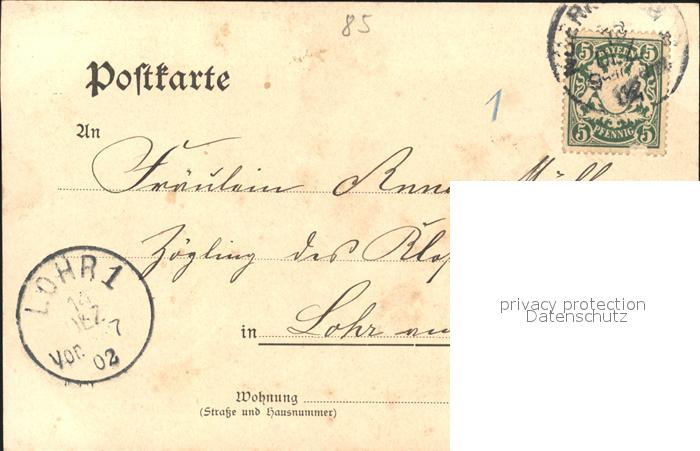 85
5 BAYERN 5
5 PFENNIG 5
Postkarte
1
An
Fräulein
Zögling des
LOHR 1
14
DEZ
Vor. 7
02
in Lohr
privacy protection
Datenschutz
Wohnung
(Straße und Hausnummer)